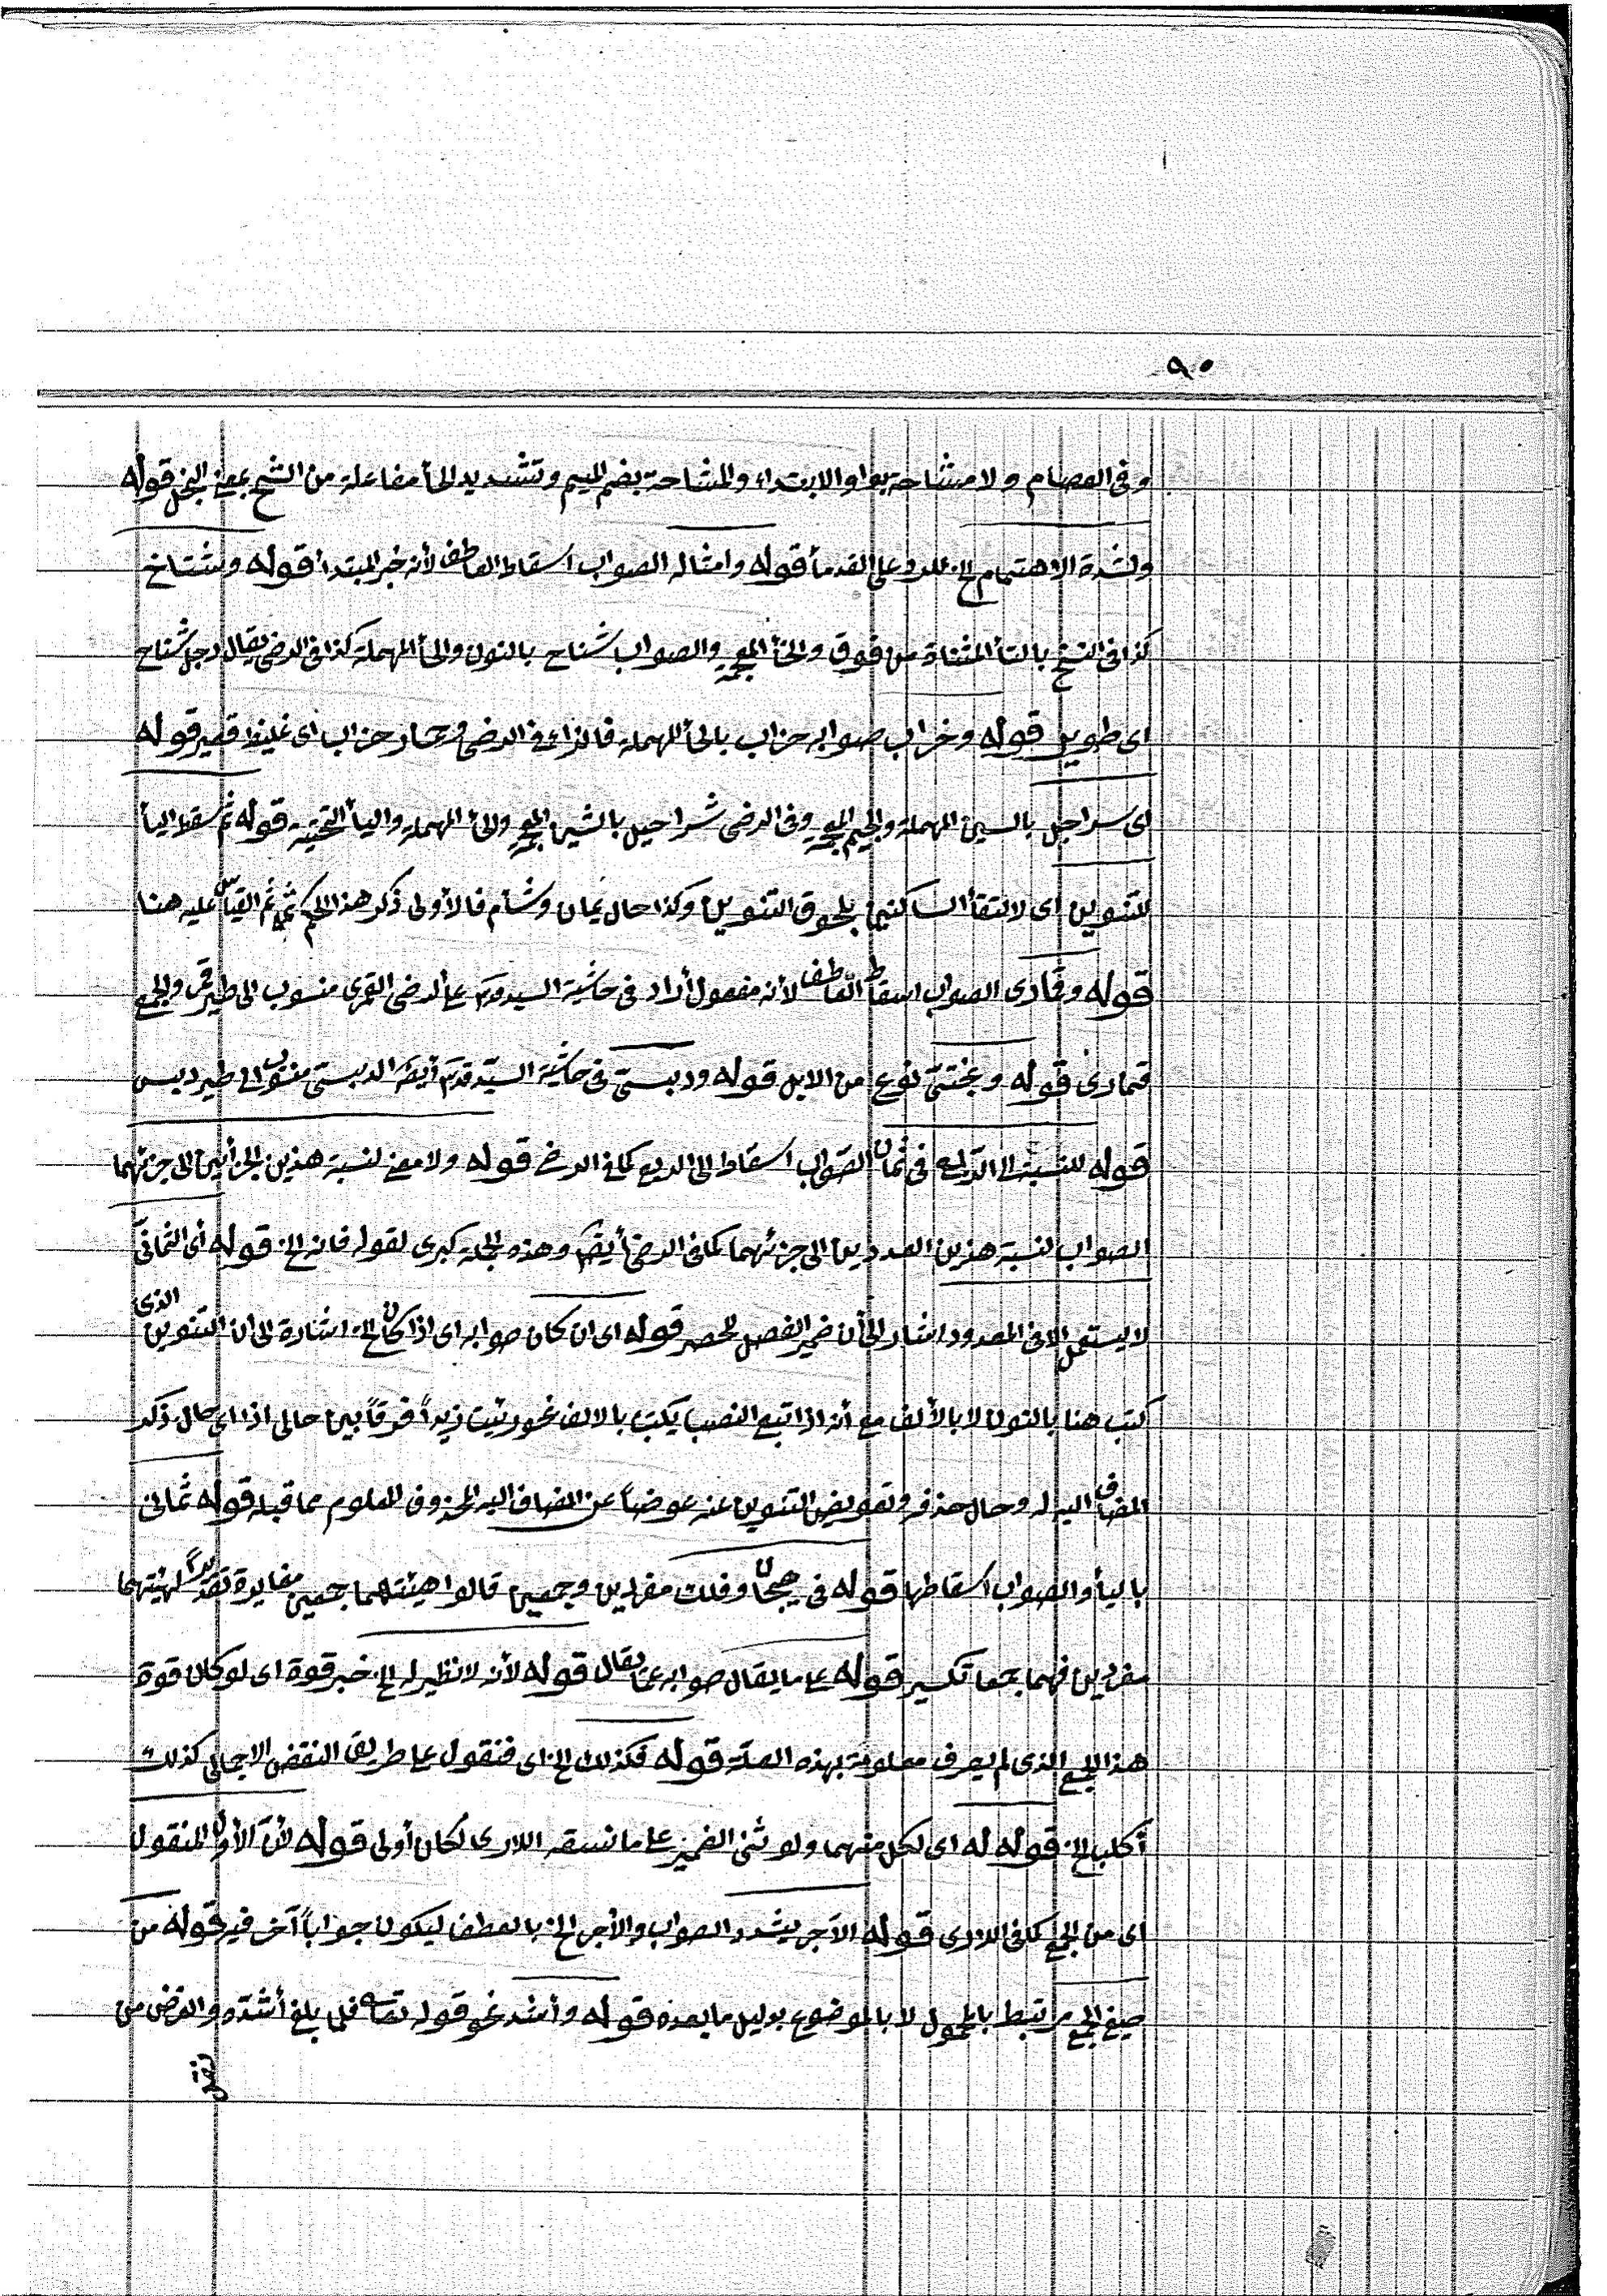 ٩٠
وفى العصام ولا مشاحة بواو الابتداء والمشاحة بضم الميم وتشديد الحأ مفاعلة من الشح بمعنى البخل قوله
ولشدة الاهتمام الخ للرد على القدمأ قوله وامثاله الصواب اسقاط العاطف لأنه خبر المبتدأ قوله وشتاخ
كذا فى النسخ بالتأ المثناة من فوق والخأ المعجمة والصواب شناح بالنون والحأ المهملة كذا فى الرضى يقال رجل شناح
اى طويل قوله وخراب صوابه حزاب بالحأ المهملة فالزاى فى الرضى وحمار حزاب اى غليظ قصير قوله
اى سراجل بالسين المهملة والجيم المعجمة وفى الرضى شراحيل بالشين المعجمة والحأ المهملة واليأ التحتية قوله ثم سقط اليأ
للتنوين اى لالتقأ الساكنين بلحوق التنوين وكذا حال يمان وشأم فالأولى ذكر هذا الحكم ثمة ثم القياس عليه هنا
قوله وقمارى الصواب اسقاط العاطف لأنه مفعول أراد فى حاشية السيد قدس على الرضى القمرى منسوب الى طير قمر والجمع
قمارى قوله وبختى نوع من الابل قوله ودبستى فى حاشية السيد قدس أيضا الدبستى منسوب الى طير دبس
قوله للنسبة الى الربع فى ثمان الصواب اسقاط الى الربع كما فى الرضى قوله ولا معنى لنسبة هذين الجزأين الى جزئهما
الصواب لنسبة هذين العددين الى جزئهما كما فى الرضى أيضا وهذه الجملة كبرى لقوله فانه الخ قوله أى الثمانى
لا يستعمل الا فى المعدود اشار الى أن ضمير الفصل للحصر قوله اى ان كان صوابه اى اذا كان الخ اشارة الى ان التنوين الذى
كتب هنا بالنون لا بالألف مع أنه اذا تبع النصب يكتب بالالف نحو رئيت زيداً فرقاً بين حالى اذا اى حال ذكر
المضاف اليه له وحال حذفه وتعويض التنوين عنه عوضاً عن المضاف اليه المحذوف المعلوم مما قبله قوله ثمانى
باليأ والصواب اسقاطها قوله فى هجان وفلك مفردين وجمعين قالوا هيئتهما جمعين مغايرة تقديراً لهيئتهما
مفردين فهما جمعا تكسير قوله على ما يقال صوابه عما يقال قوله لأنه لا نظير له الخ خبر قوة اى لو كان قوة
هذا الجمع الذى لم يعرف معلومة بهذه العلة قوله فكذلك الخ اى فنقول على طريق النقض الاجمالى كذلك
أكلب الخ قوله له اى لكل منهما ولو ثنى الضمير على ما نسقه اللارى لكان أولى قوله لأن الأول المنقول
اى من الجمع كما فى اللارى قوله الآجر يشدد والصواب والأجر الخ بالعطف ليكون جواباً آخر فيه قوله من
صيغ الجمع مرتبط بالمحمول لا بالموضوع بدليل ما بعده قوله وأشد نحو قوله تعالى فلما بلغ أشده والغرض من